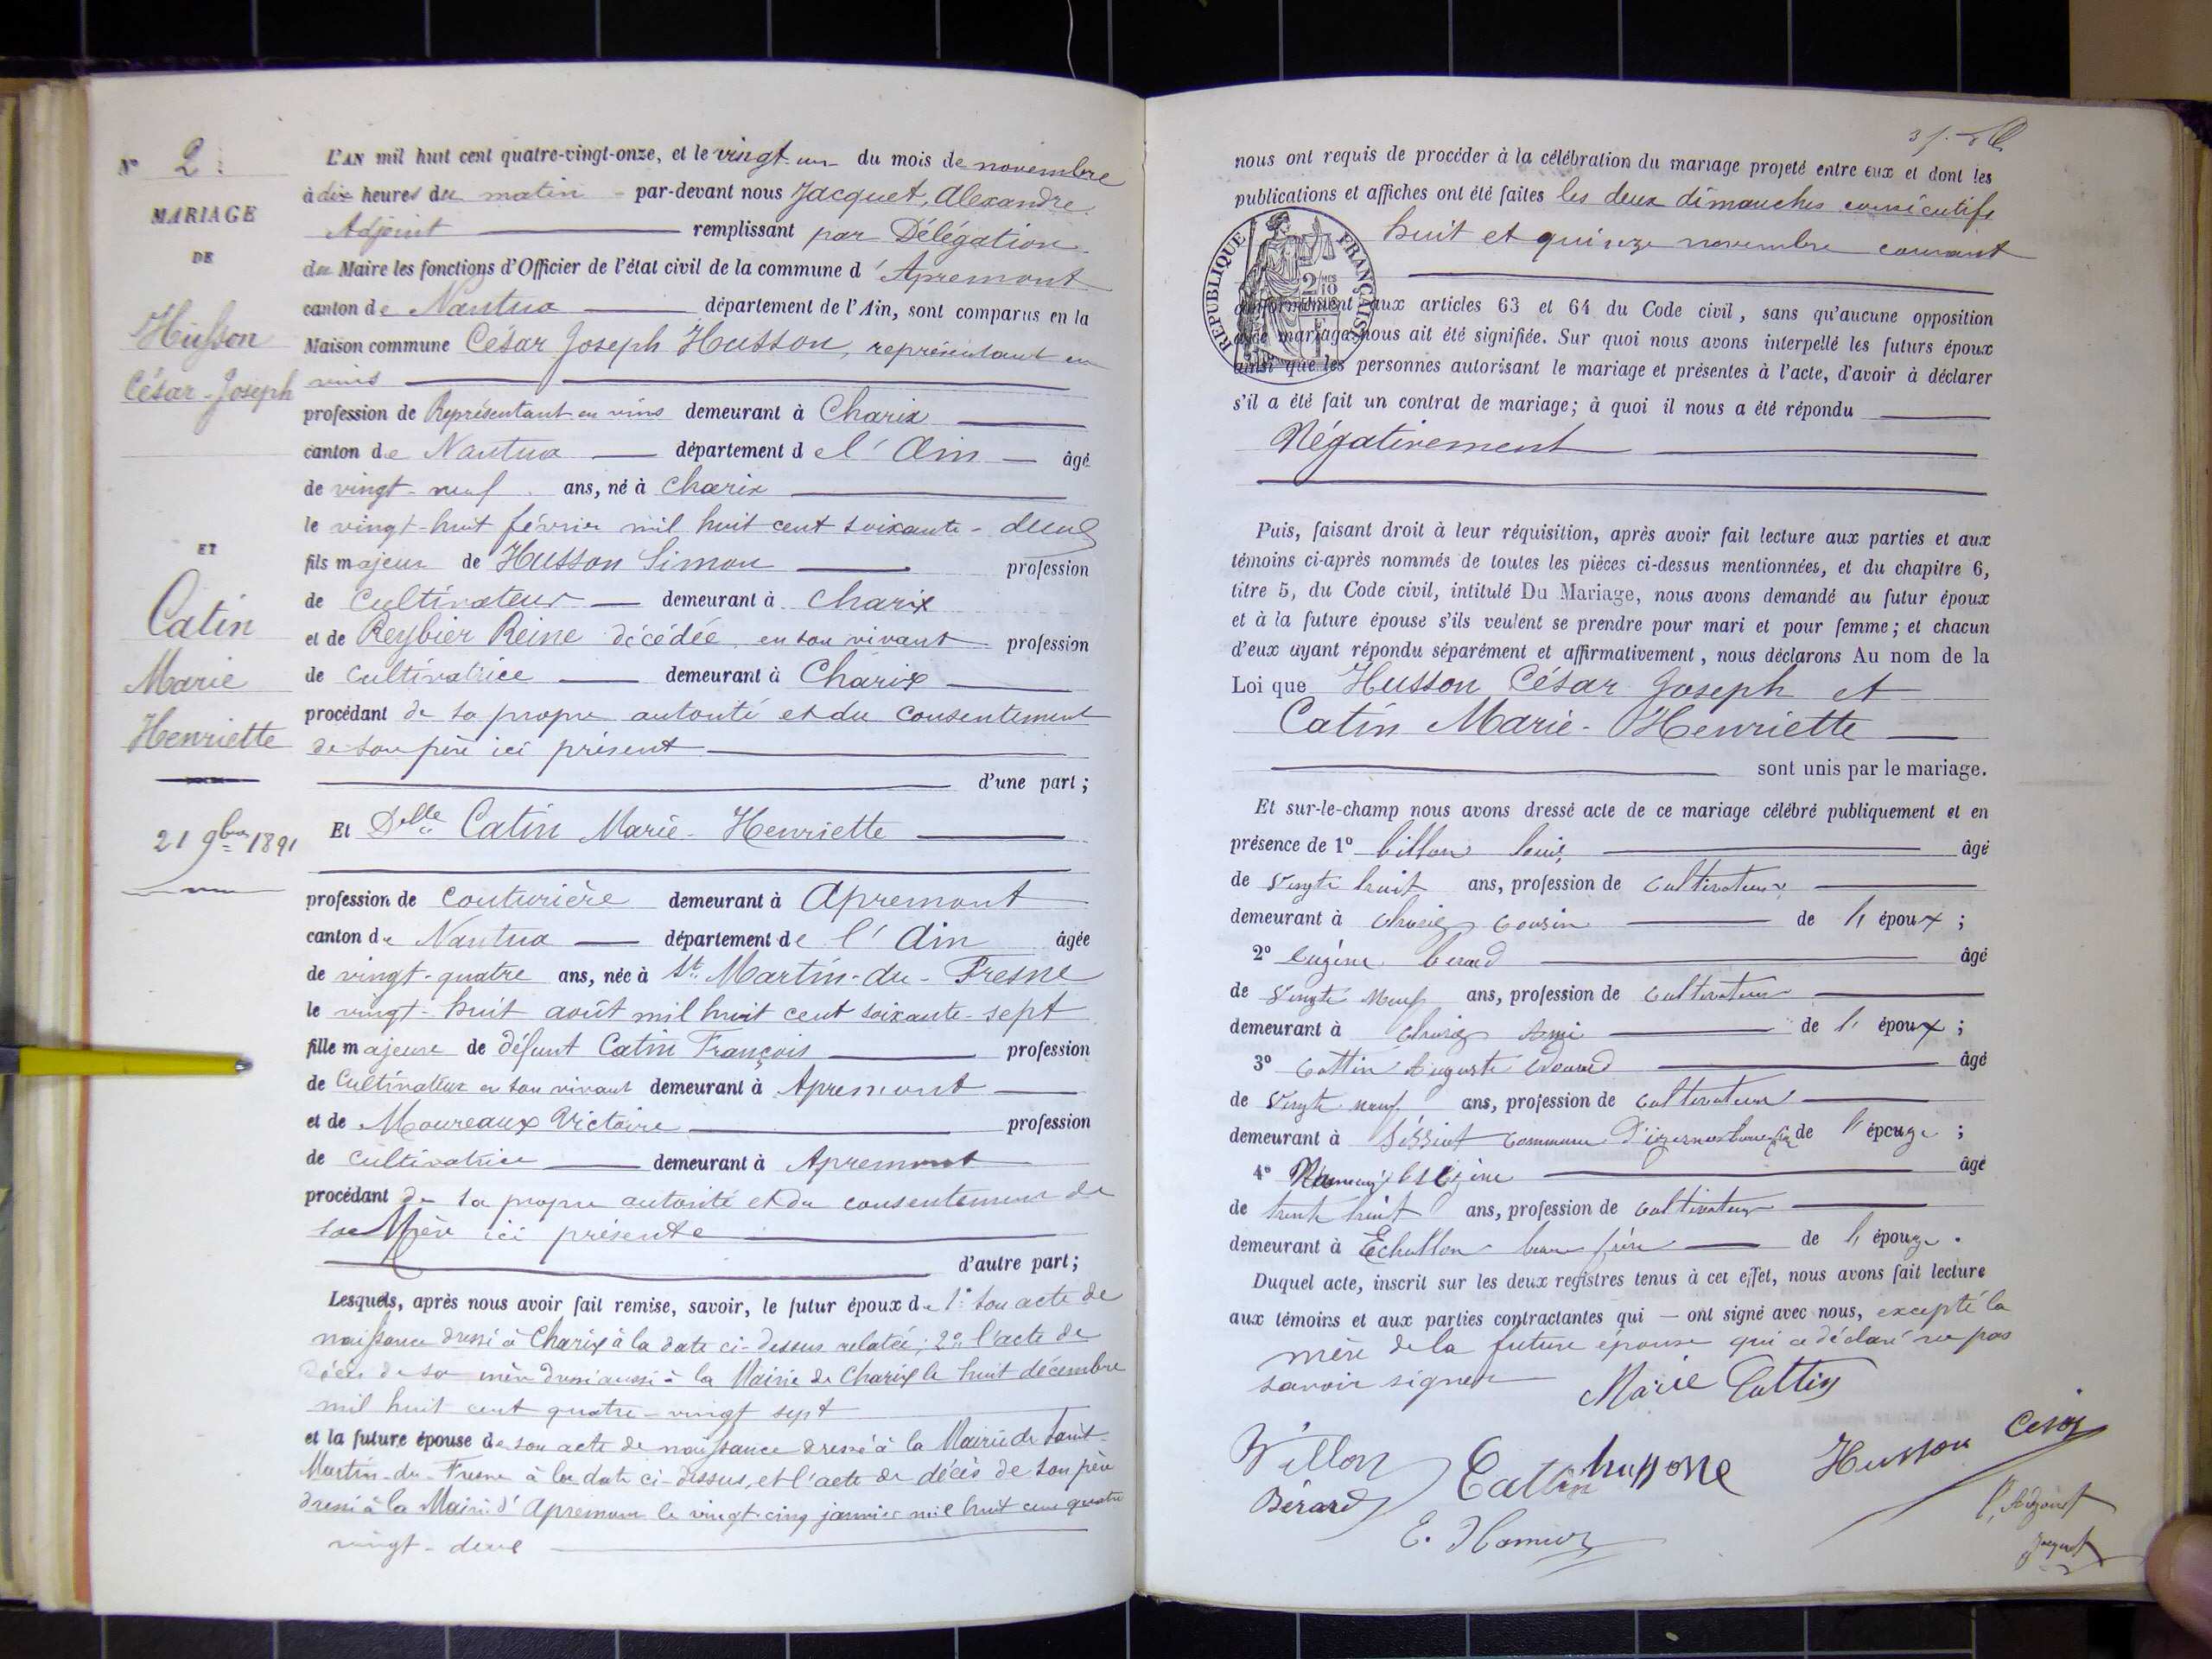 N° 2
MARIAGE
DE
Husson
César-Joseph
ET
Catin
Marie
Henriette
21 9bre 1891
L'AN mil huit cent quatre-vingt-onze, et le vingt-un du mois de novembre
à dix heures du matin par-devant nous Jacquet, Alexandre
Adjoint remplissant par Délégation
du Maire les fonctions d'Officier de l'état civil de la commune d'Apremont
canton de Nantua département de l'Ain, sont comparus en la
Maison commune César Joseph Husson, représentant en
vins
profession de Représentant en vins demeurant à Charix
canton de Nantua département de l'Ain âgé
de vingt-neuf ans, né à Charix
le vingt-huit février mil huit cent soixante-deux
fils majeur de Husson Simon profession
de Cultivateur demeurant à Charix
et de Reybier Reine décédée en son vivant profession
de Cultivatrice demeurant à Charix
procédant de sa propre autorité et du consentement
de son père ici présent
d'une part ;
Et Delle Catin Marie-Henriette
profession de couturière demeurant à Apremont
canton de Nantua département de l'Ain âgée
de vingt-quatre ans, née à St Martin-du-Fresne
le vingt-huit août mil huit cent soixante-sept
fille majeure de défunt Catin François profession
de Cultivateur en son vivant demeurant à Apremont
et de Moureaux Victoire profession
de cultivatrice demeurant à Apremont
procédant de sa propre autorité et du consentement de
sa Mère ici présente
d'autre part ;
Lesquels, après nous avoir fait remise, savoir, le futur époux de 1° son acte de
naissance dressé à Charix à la date ci-dessus relatée ; 2° l'acte de
décès de sa mère dressé aussi à la Mairie de Charix le huit décembre
mil huit cent quatre-vingt sept
et la future épouse de son acte de naissance dressé à la Mairie de Saint-
Martin-du-Fresne à la date ci-dessus, et l'acte de décès de son père
dressé à la Mairie d'Apremont le vingt-cinq janvier mil huit cent quatre
vingt-deux
nous ont requis de procéder à la célébration du mariage projeté entre eux et dont les
publications et affiches ont été faites les deux dimanches consécutifs
huit et quinze novembre courant
RÉPUBLIQUE FRANÇAISE
2/10
conformément aux articles 63 et 64 du Code civil, sans qu'aucune opposition
audit mariage nous ait été signifiée. Sur quoi nous avons interpellé les futurs époux
ainsi que les personnes autorisant le mariage et présentes à l'acte, d'avoir à déclarer
s'il a été fait un contrat de mariage ; à quoi il nous a été répondu
Négativement
Puis, faisant droit à leur réquisition, après avoir fait lecture aux parties et aux
témoins ci-après nommés de toutes les pièces ci-dessus mentionnées, et du chapitre 6,
titre 5, du Code civil, intitulé Du Mariage, nous avons demandé au futur époux
et à la future épouse s'ils veulent se prendre pour mari et pour femme ; et chacun
d'eux ayant répondu séparément et affirmativement, nous déclarons Au nom de la
Loi que Husson César Joseph et
Catin Marie-Henriette
sont unis par le mariage.
Et sur-le-champ nous avons dressé acte de ce mariage célébré publiquement et en
présence de 1° billon Louis, âgé
de Vingt huit ans, profession de Cultivateur
demeurant à Charix Cousin de l'époux ;
2° Eugène Berard âgé
de Vingt Neuf ans, profession de Cultivateur
demeurant à Charix Ami de l'époux ;
3° Cattin Auguste Edouard âgé
de Vingt neuf ans, profession de Cultivateur
demeurant à commune de l'épouse ;
4° âgé
de trente huit ans, profession de Cultivateur
demeurant à Echallon beau frère de l'épouse.
Duquel acte, inscrit sur les deux registres tenus à cet effet, nous avons fait lecture
aux témoins et aux parties contractantes qui — ont signé avec nous, excepté la
mère de la future épouse qui a déclaré ne pas
savoir signer Marie Cattin
Billon Cattin hussone Husson César
Bérard l'Adjoint
E. Jacquet